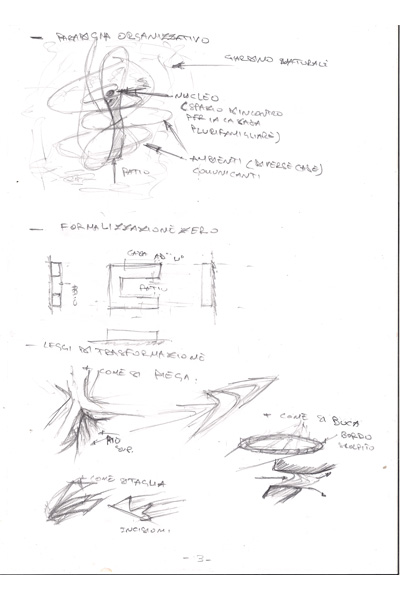 - PARADIGMA ORGANIZZATIVO
GIARDINO NATURALE
NUCLEO
(SPAZIO D'INCONTRO
PER LA CASA
PLURIFAMIGLIARE)
AMBIENTI (DIVERSE CASE)
COMUNICANTI
PATIO
- FORMALIZZAZIONE ZERO
CASA AD "U"
PATIO
- LEGGI DI TRASFORMAZIONE
+ COME SI PIEGA:
+ COME SI BUCA
BORDO
SUP.
+ COME SI TAGLIA
INCISIONI
- 3 -